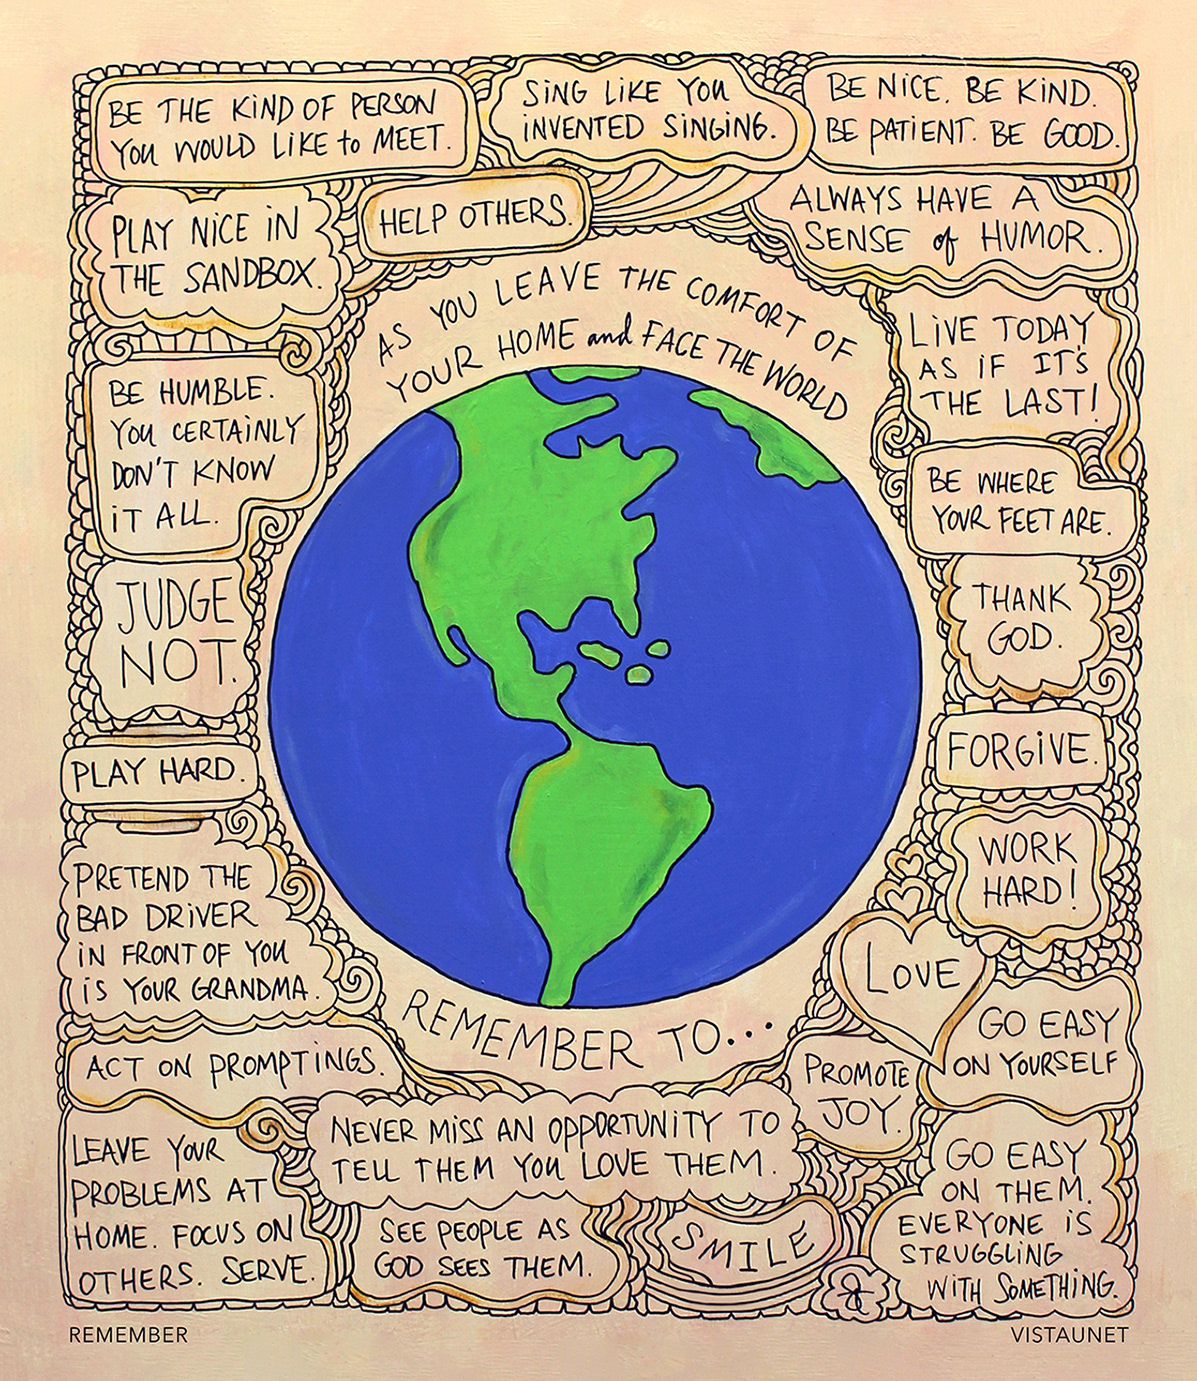 BE THE KIND OF PERSON
YOU WOULD LIKE to MEET.
SING LIKE YOU
INVENTED SINGING.
BE NICE. BE KIND.
BE PATIENT. BE GOOD.
PLAY NICE IN
THE SANDBOX.
HELP OTHERS.
ALWAYS HAVE A
SENSE of HUMOR.
AS YOU LEAVE THE COMFORT OF
YOUR HOME and FACE THE WORLD
LIVE TODAY
AS IF IT'S
THE LAST!
BE HUMBLE.
YOU CERTAINLY
DON'T KNOW
IT ALL.
BE WHERE
YOUR FEET ARE.
JUDGE
NOT.
THANK
GOD.
PLAY HARD.
FORGIVE.
WORK
HARD!
PRETEND THE
BAD DRIVER
IN FRONT OF YOU
IS YOUR GRANDMA.
LOVE
REMEMBER TO...
GO EASY
ON YOURSELF
ACT ON PROMPTINGS.
PROMOTE
JOY.
NEVER MISS AN OPPORTUNITY TO
TELL THEM YOU LOVE THEM.
LEAVE YOUR
PROBLEMS AT
HOME. FOCUS ON
OTHERS. SERVE.
SEE PEOPLE AS
GOD SEES THEM.
SMILE
GO EASY
ON THEM.
EVERYONE IS
STRUGGLING
WITH SOMETHING.
REMEMBER
VISTAUNET